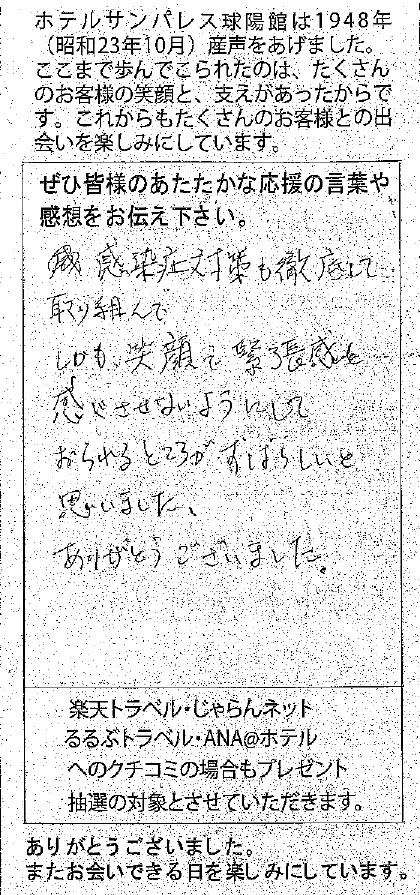 ホテルサンパレス球陽館は1948年
（昭和23年10月）産声をあげました。
ここまで歩んでこられたのは、たくさん
のお客様の笑顔と、支えがあったからで
す。これからもたくさんのお客様との出
会いを楽しみにしています。
ぜひ皆様のあたたかな応援の言葉や
感想をお伝え下さい。
感染症対策も徹底して
取り組んで
しかも、笑顔で緊張感を
感じさせないようにして
おられるところがすばらしいと
思いました、
ありがとうございました。
楽天トラベル・じゃらんネット
るるぶトラベル・ANA@ホテル
へのクチコミの場合もプレゼント
抽選の対象とさせていただきます。
ありがとうございました。
またお会いできる日を楽しみにしています。